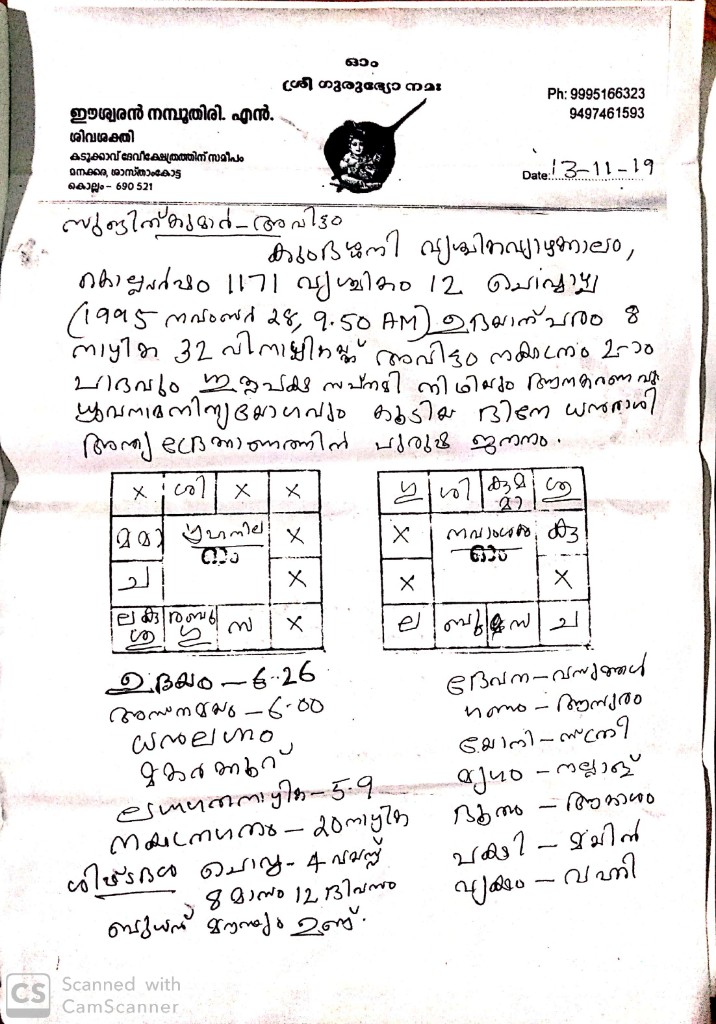 ഓം
ശ്രീ ഗുരുഭ്യോ നമഃ
ഈശ്വരൻ നമ്പൂതിരി. എൻ.
ശിവശക്തി
കടൂക്കാവ് ദേവീക്ഷേത്രത്തിന് സമീപം
മനക്കര, ശാസ്താംകോട്ട
കൊല്ലം - 690 521
Ph: 9995166323
9497461593
Date: 13-11-19
കുമാർ - അവിട്ടം
കുംഭശനി വൃശ്ചികവ്യാഴക്കാലം,
കൊല്ലവർഷം 1171 വൃശ്ചികം 12 ചൊവ്വാഴ്ച
(1995 നവംബർ 28, 9.50 AM) ഉദയാന്പരം 8
നാഴിക 32 വിനാഴികയ്ക്ക് അവിട്ടം നക്ഷത്രം
പാദവും സപ്തമി തിഥിയും
യോഗവും കൂടിയ ദിനേ ധനുരാശി
അന്ത്യ ദ്രേക്കാണത്തിൽ പുരുഷ ജനനം.
x ശി x x
മ മാ ഗ്രഹനില x
ഓം
ച x
ല കു ശു ര ബു ഗു സ x
ഗു ശി കു മ മാ ശു
x നവാംശകം കു
ഓം
x x
ല ബു സ ച
ഉദയം - 6.26
അസ്തമയം - 6.00
ധനുലഗ്നം
മകരക്കൂറ്
നാഴിക - 5.9
നക്ഷത്രഗതം - 20 നാഴിക
ശിഷ്ടദശ ചൊവ്വ - 4 വയസ്സ്
8 മാസം 12 ദിവസം
ബുധന് മൗഢ്യം ഉണ്ട്.
ദേവത - വസുക്കൾ
ഗണം - ആസുരം
യോനി - സ്ത്രീ
മൃഗം - നല്ലാള്
ഭൂതം - ആകാശം
പക്ഷി - മയിൽ
വൃക്ഷം - വഹ്നി
CS Scanned with
CamScanner